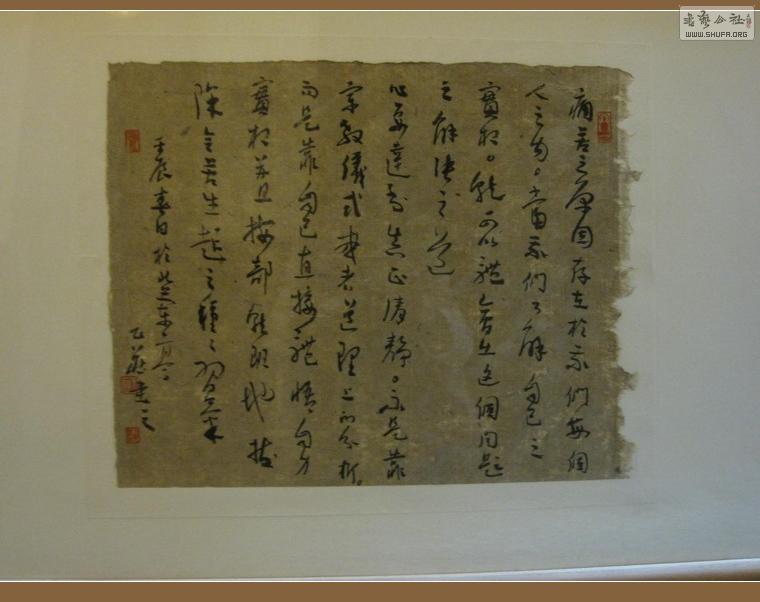 痛苦之原因存在於我們每個
人之內。當我們了解自己之
實相。就可以體會出這個問題
之解決之道
心要達到真正清靜。不是靠
宗教儀式或者道理上的分析。
而是靠自己直接體悟自身
實相並且按部就班地拔
除令苦生起之種種習氣
壬辰春日於
書藝公社
WWW.SHUFA.ORG